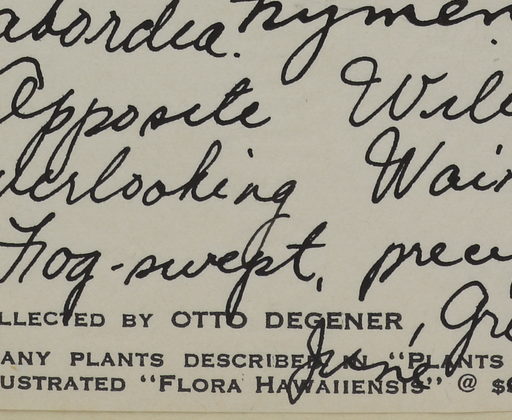 abordia. hymen
Opposite Wil
verlooking Wai
Fog-swept, prec
LLECTED BY OTTO DEGENER, Gre
June
ANY PLANTS DESCRIBED IN "PLANTS
USTRATED "FLORA HAWAIIENSIS" @ $